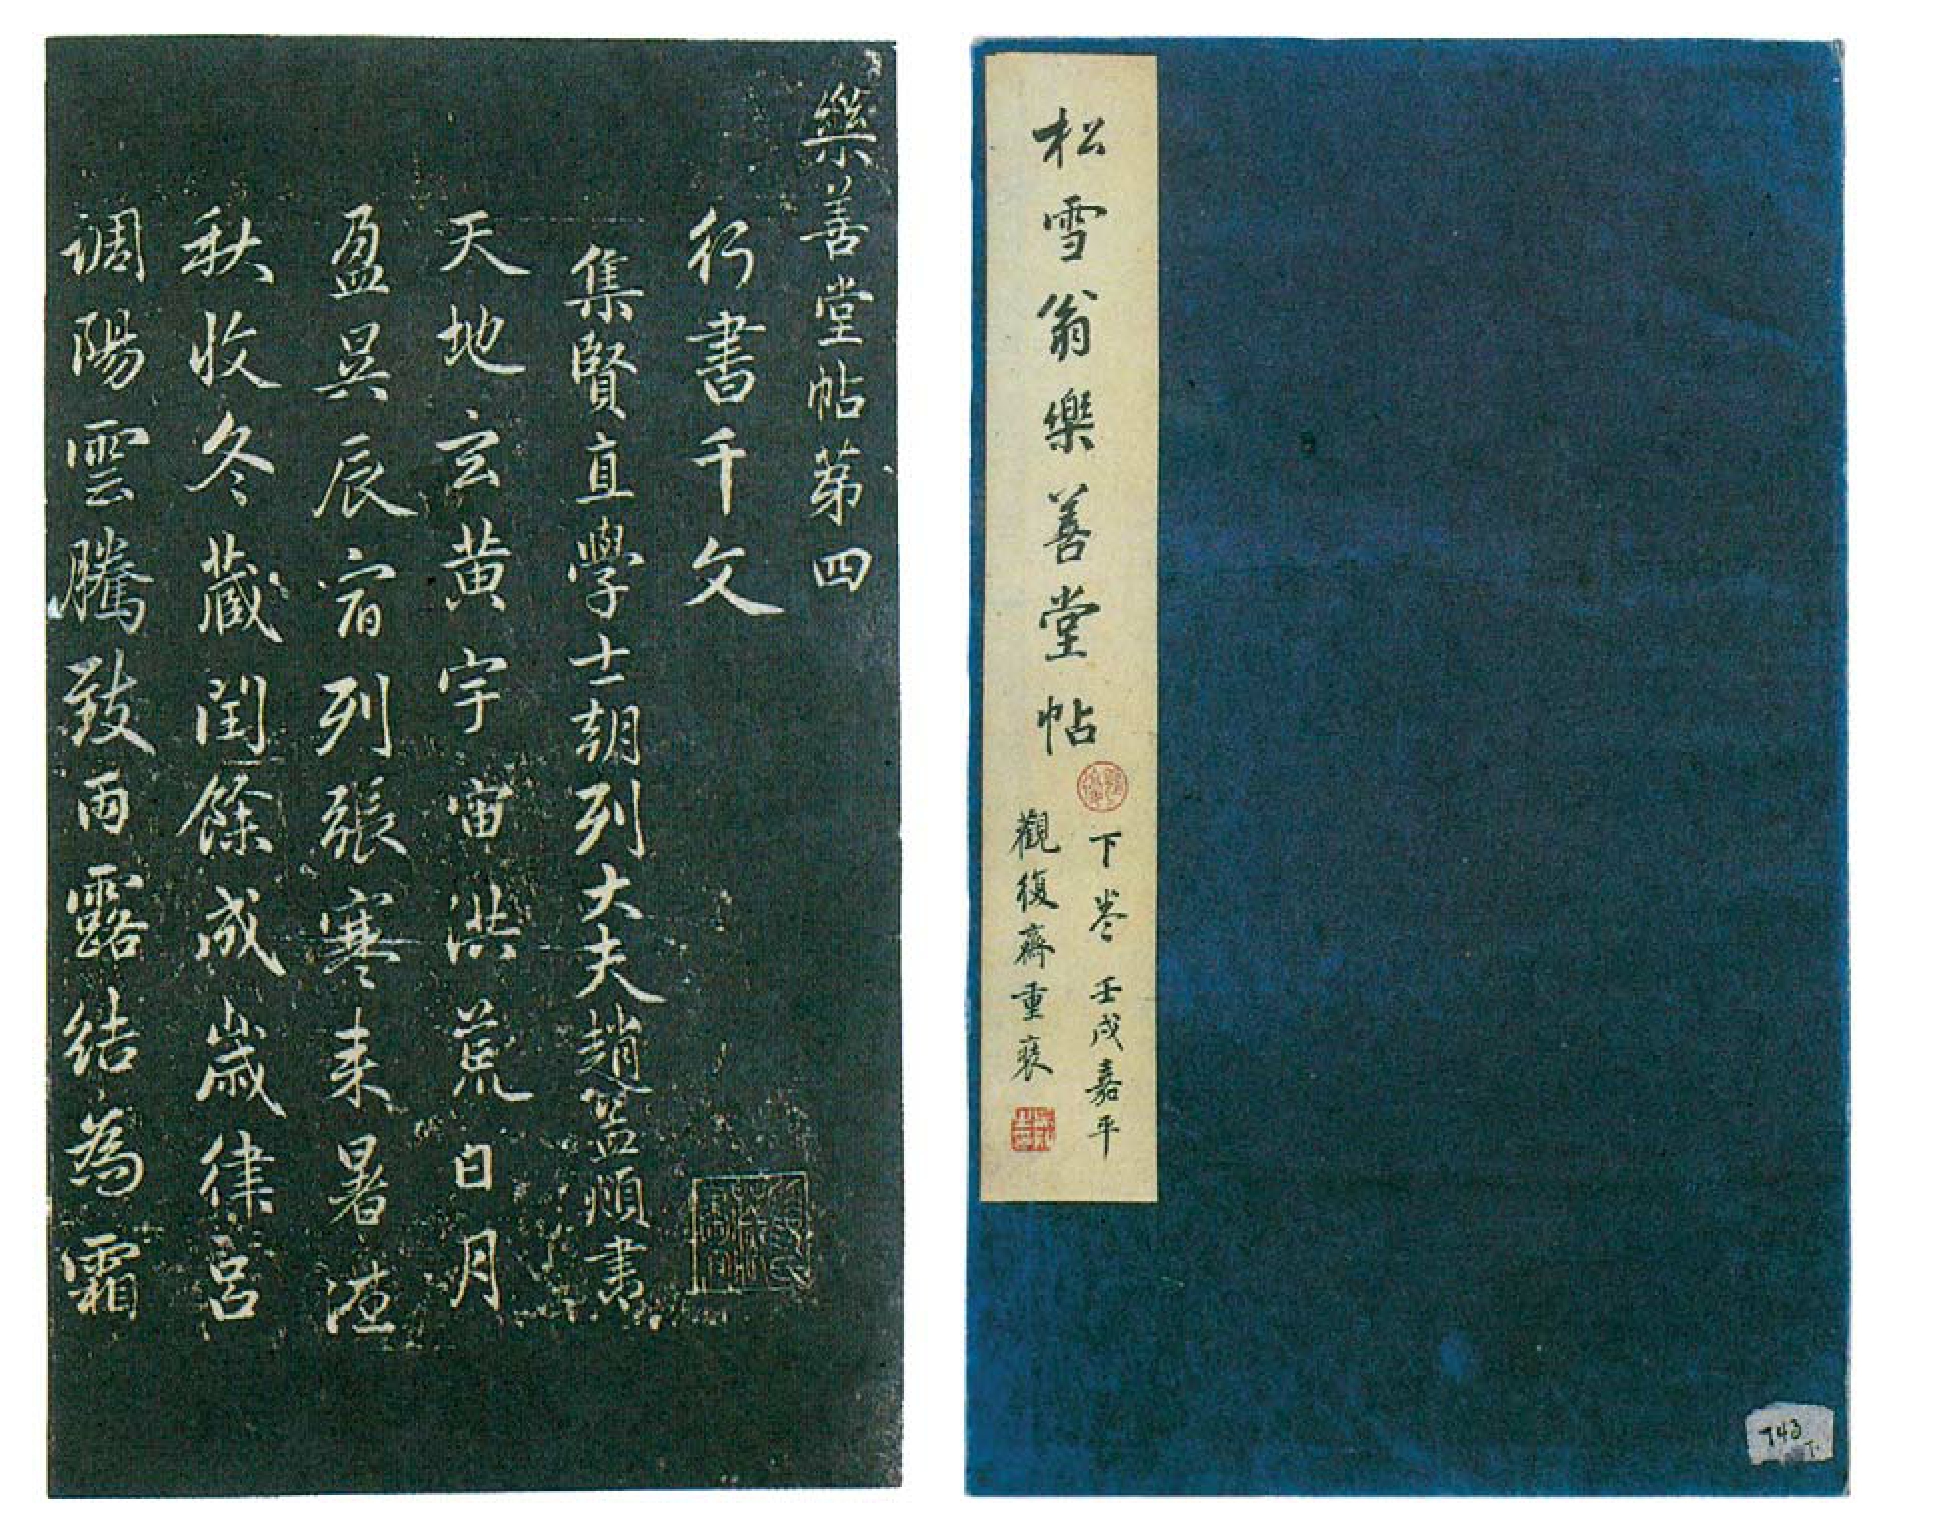 松雪翁樂善堂帖
下卷 壬戌嘉平
觀復齋重裝
743
樂善堂帖第四
行書千文
集賢直學士朝列大夫趙孟頫書
天地玄黃宇宙洪荒日月
盈昃辰宿列張寒来暑往
秋收冬藏閏餘成歲律呂
調陽雲騰致雨露結為霜